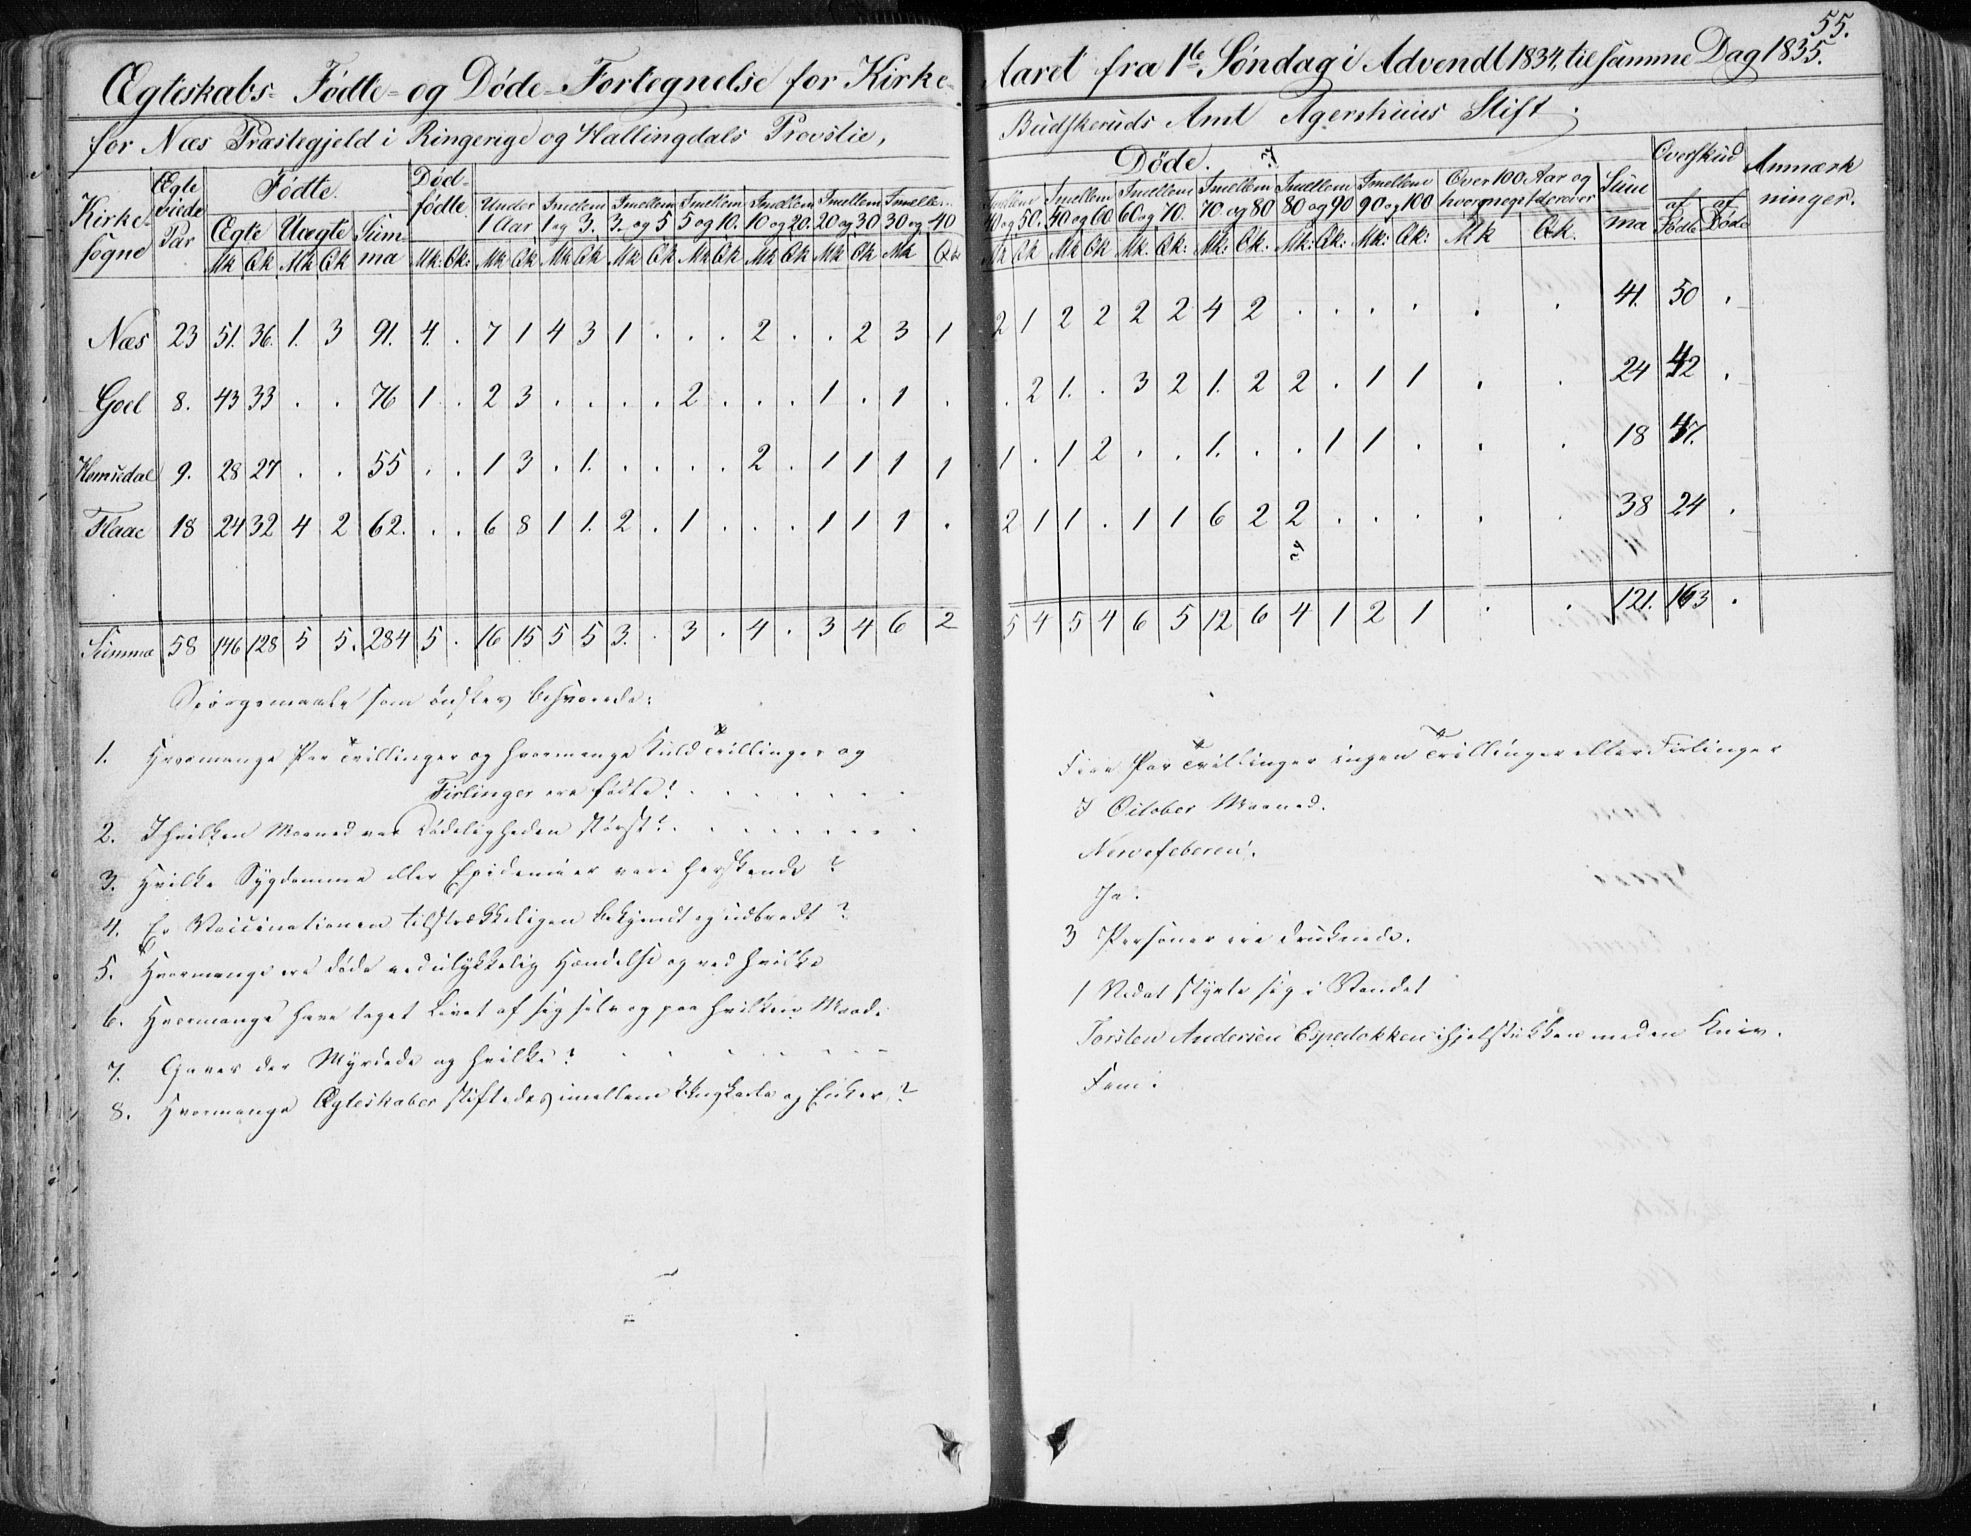 55.
Ægteskabs- Fødte- og Døde- Fortegnelse for Kirke- Aaret fra 1te Søndag i Advendt 1834, til samme Dag 1835.
for Næs Præstegjeld i Ringerige og Hallingdals Provstie, Budskeruds Amt Agershuus Stift.
Kirke- sogne | Ægte viede Par | Fødte. | Død- fødte | Døde. | Overskud | Anmærk ninger.
Ægte | Uægte | Sum- ma | Under 1 Aar | Imellem 1 og 3. | Imellem 3. og 5 | Imellem 5 og 10. | Imellem 10 og 20. | Imellem 20 og 30 | Imellem 30 og 40 | Imellem 40 og 50. | Imellem 50 og 60. | Imellem 60 og 70. | Imellem 70 og 80 | Imellem 80 og 90 | Imellem 90 og 100 | Over 100 Aar og | Sum ma | af Fødte | af Døde
Mk Qk Mk Qk Mk: Qk: Mk Qk Mk Qk Mk Qk Mk Qk Mk Qk Mk Qk Mk Qk Mk Qk Mk Qk Mk. Qk: Mk: Qk. Mk: Qk. Mk: Qk: Mk Qk.
Næs 23 51. 36. 1. 3 91. 4. . 7 1 4 3 1 . . . 2 . . 2 3 1 2 1 2 2 2 2 4 2 . . . . . . 41. 50 .
Goel 8. 43 33 . . 76 1 . 2 3 . . . . 2 . . . 1 . 1 . . 2 1. . 3 2 1. 2 2 . 1 1 . . 24 42 .
Hemsedal 9. 28 27 . . 55 . . 1 3 . 1. . . . . 2 . 1 1 1 1 1 . 1 2 . . 1. . . 1 1 . . . 18 47.
Flaae 18 24 32 4 2 62. . . 6 8 1 1. 2 . 1 . . . 1 1 1 . 2 1 1 . 1 1 6 2 2 . . . . . 38 24 .
Summa 58 146 128 5 5. 284 5 . 16 15 5 5 3. . 3 . 4 . 3 4 6 2 5 4 5 4 6 5 12 6 4 1 2 1 . . 121. 163 .
Spørgsmaale som ønskes besvarede:
1. Hvormange Par Tvillinger og hvormange Kuld Trillinger og
Firlinger ere fødte? . . . . . . .
2. I hvilken Maaned var Dødeligheden størst? . . . . . . . .
3. Hvilke Sygdomme eller Epidemier vare herskende?
4. Er Vaccinationen tilstrækkeligen bekjendt og udbredt?
5. Hvormange ere døde ved ulykkelig Hændelse og ved hvilke
6. Hvormange have taget Livet af sig selv og paa hvilken Maade
7. Gaves der Myrdede og hvilke? . . . . . . .
8. Hvormange Ægteskaber stiftedes imellem Ungkarle og Enker?
Fire Par Tvillinger ingen Trillinger eller Firlinger
I October Maaned.
Nervefeberen.
Ja.
3 Personer ere druknede.
1 Vedat styrte sig i Vandet
Torsten Andersen Espedokken ihjelstukken med en Kniv.
Fem.